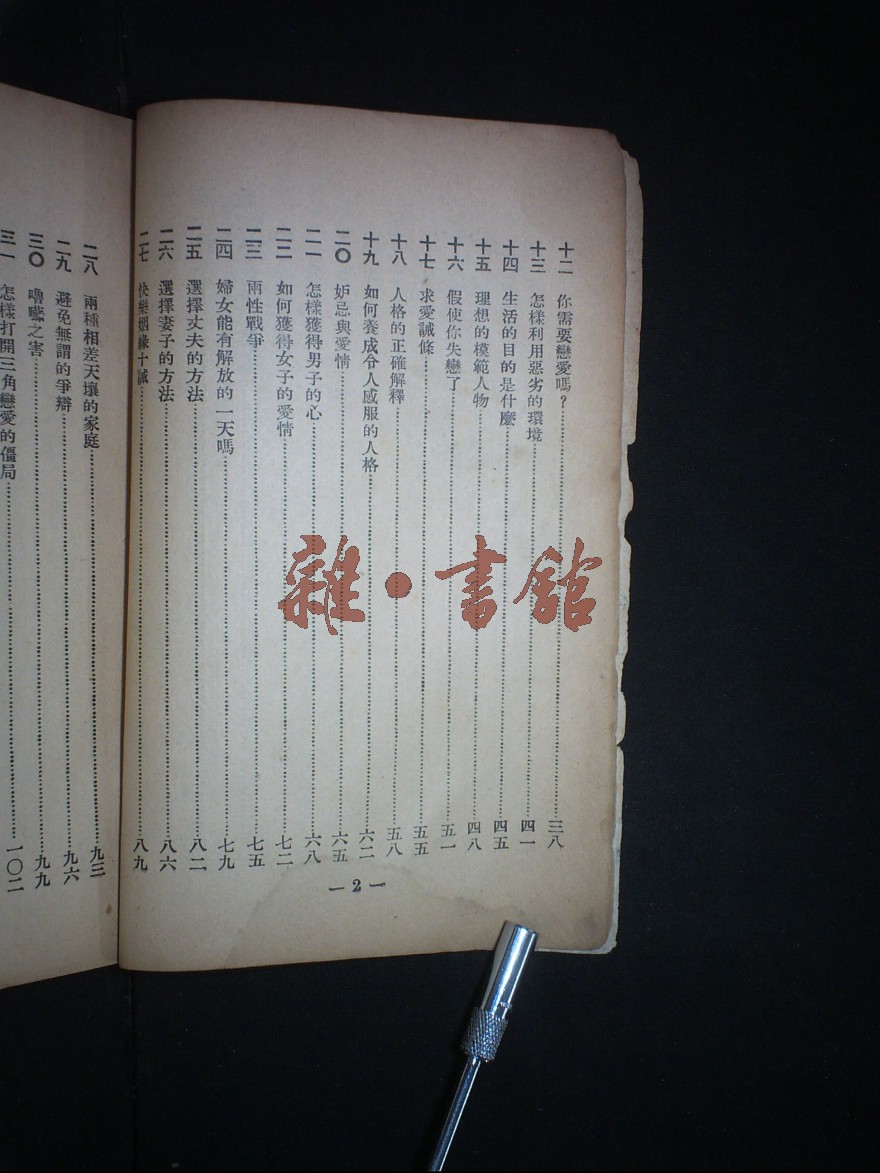 十二 你需要戀愛嗎？……三八
十三 怎樣利用惡劣的環境……四一
十四 生活的目的是什麼……四五
十五 理想的模範人物……四八
十六 假使你失戀了……五一
十七 求愛誡條……五五
十八 人格的正確解釋……五八
十九 如何養成令人感服的人格……六二
二〇 妒忌與愛情……六五
二一 怎樣獲得男子的心……六八
二二 如何獲得女子的愛情……七二
二三 兩性戰爭……七五
二四 婦女能有解放的一天嗎……七九
二五 選擇丈夫的方法……八二
二六 選擇妻子的方法……八六
二七 快樂姻緣十誡……八九
—2—
二八 兩種相差天壤的家庭……九三
二九 避免無謂的爭辯……九六
三〇 嚕囌之害……九九
三一 怎樣打開三角戀愛的僵局……一〇二
雜·書館